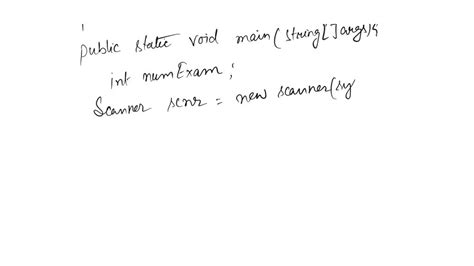 public static void main(string[]args){
int numExam;
Scanner scnr = new scanner(sy